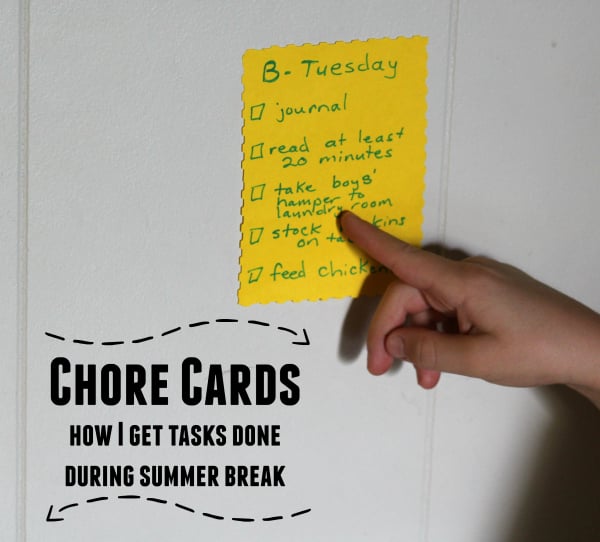 B- Tuesday
journal
read at least
20 minutes
take boys'
hamper to
laundry room
stock
on
feed
CHORE CARDS
HOW I GET TASKS DONE
DURING SUMMER BREAK